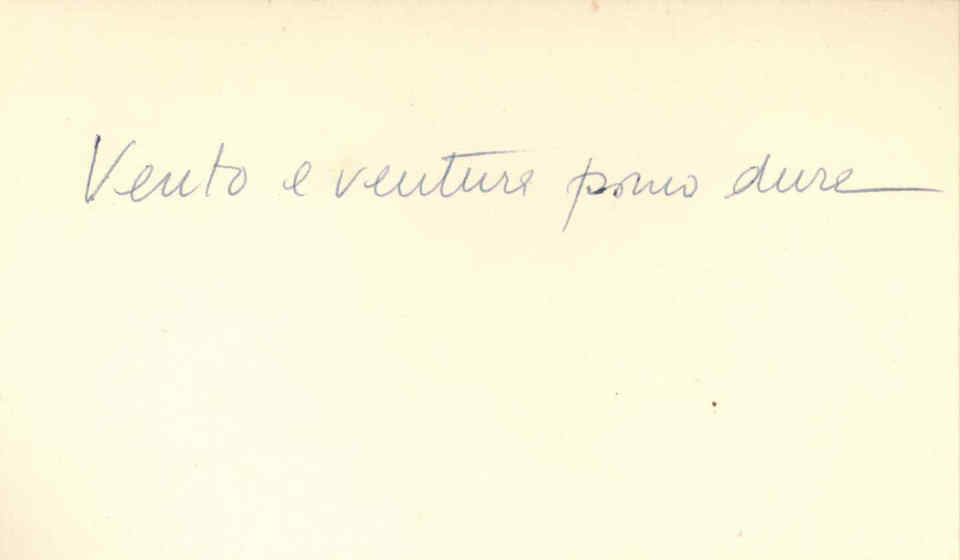 Vento e ventura pouco dura